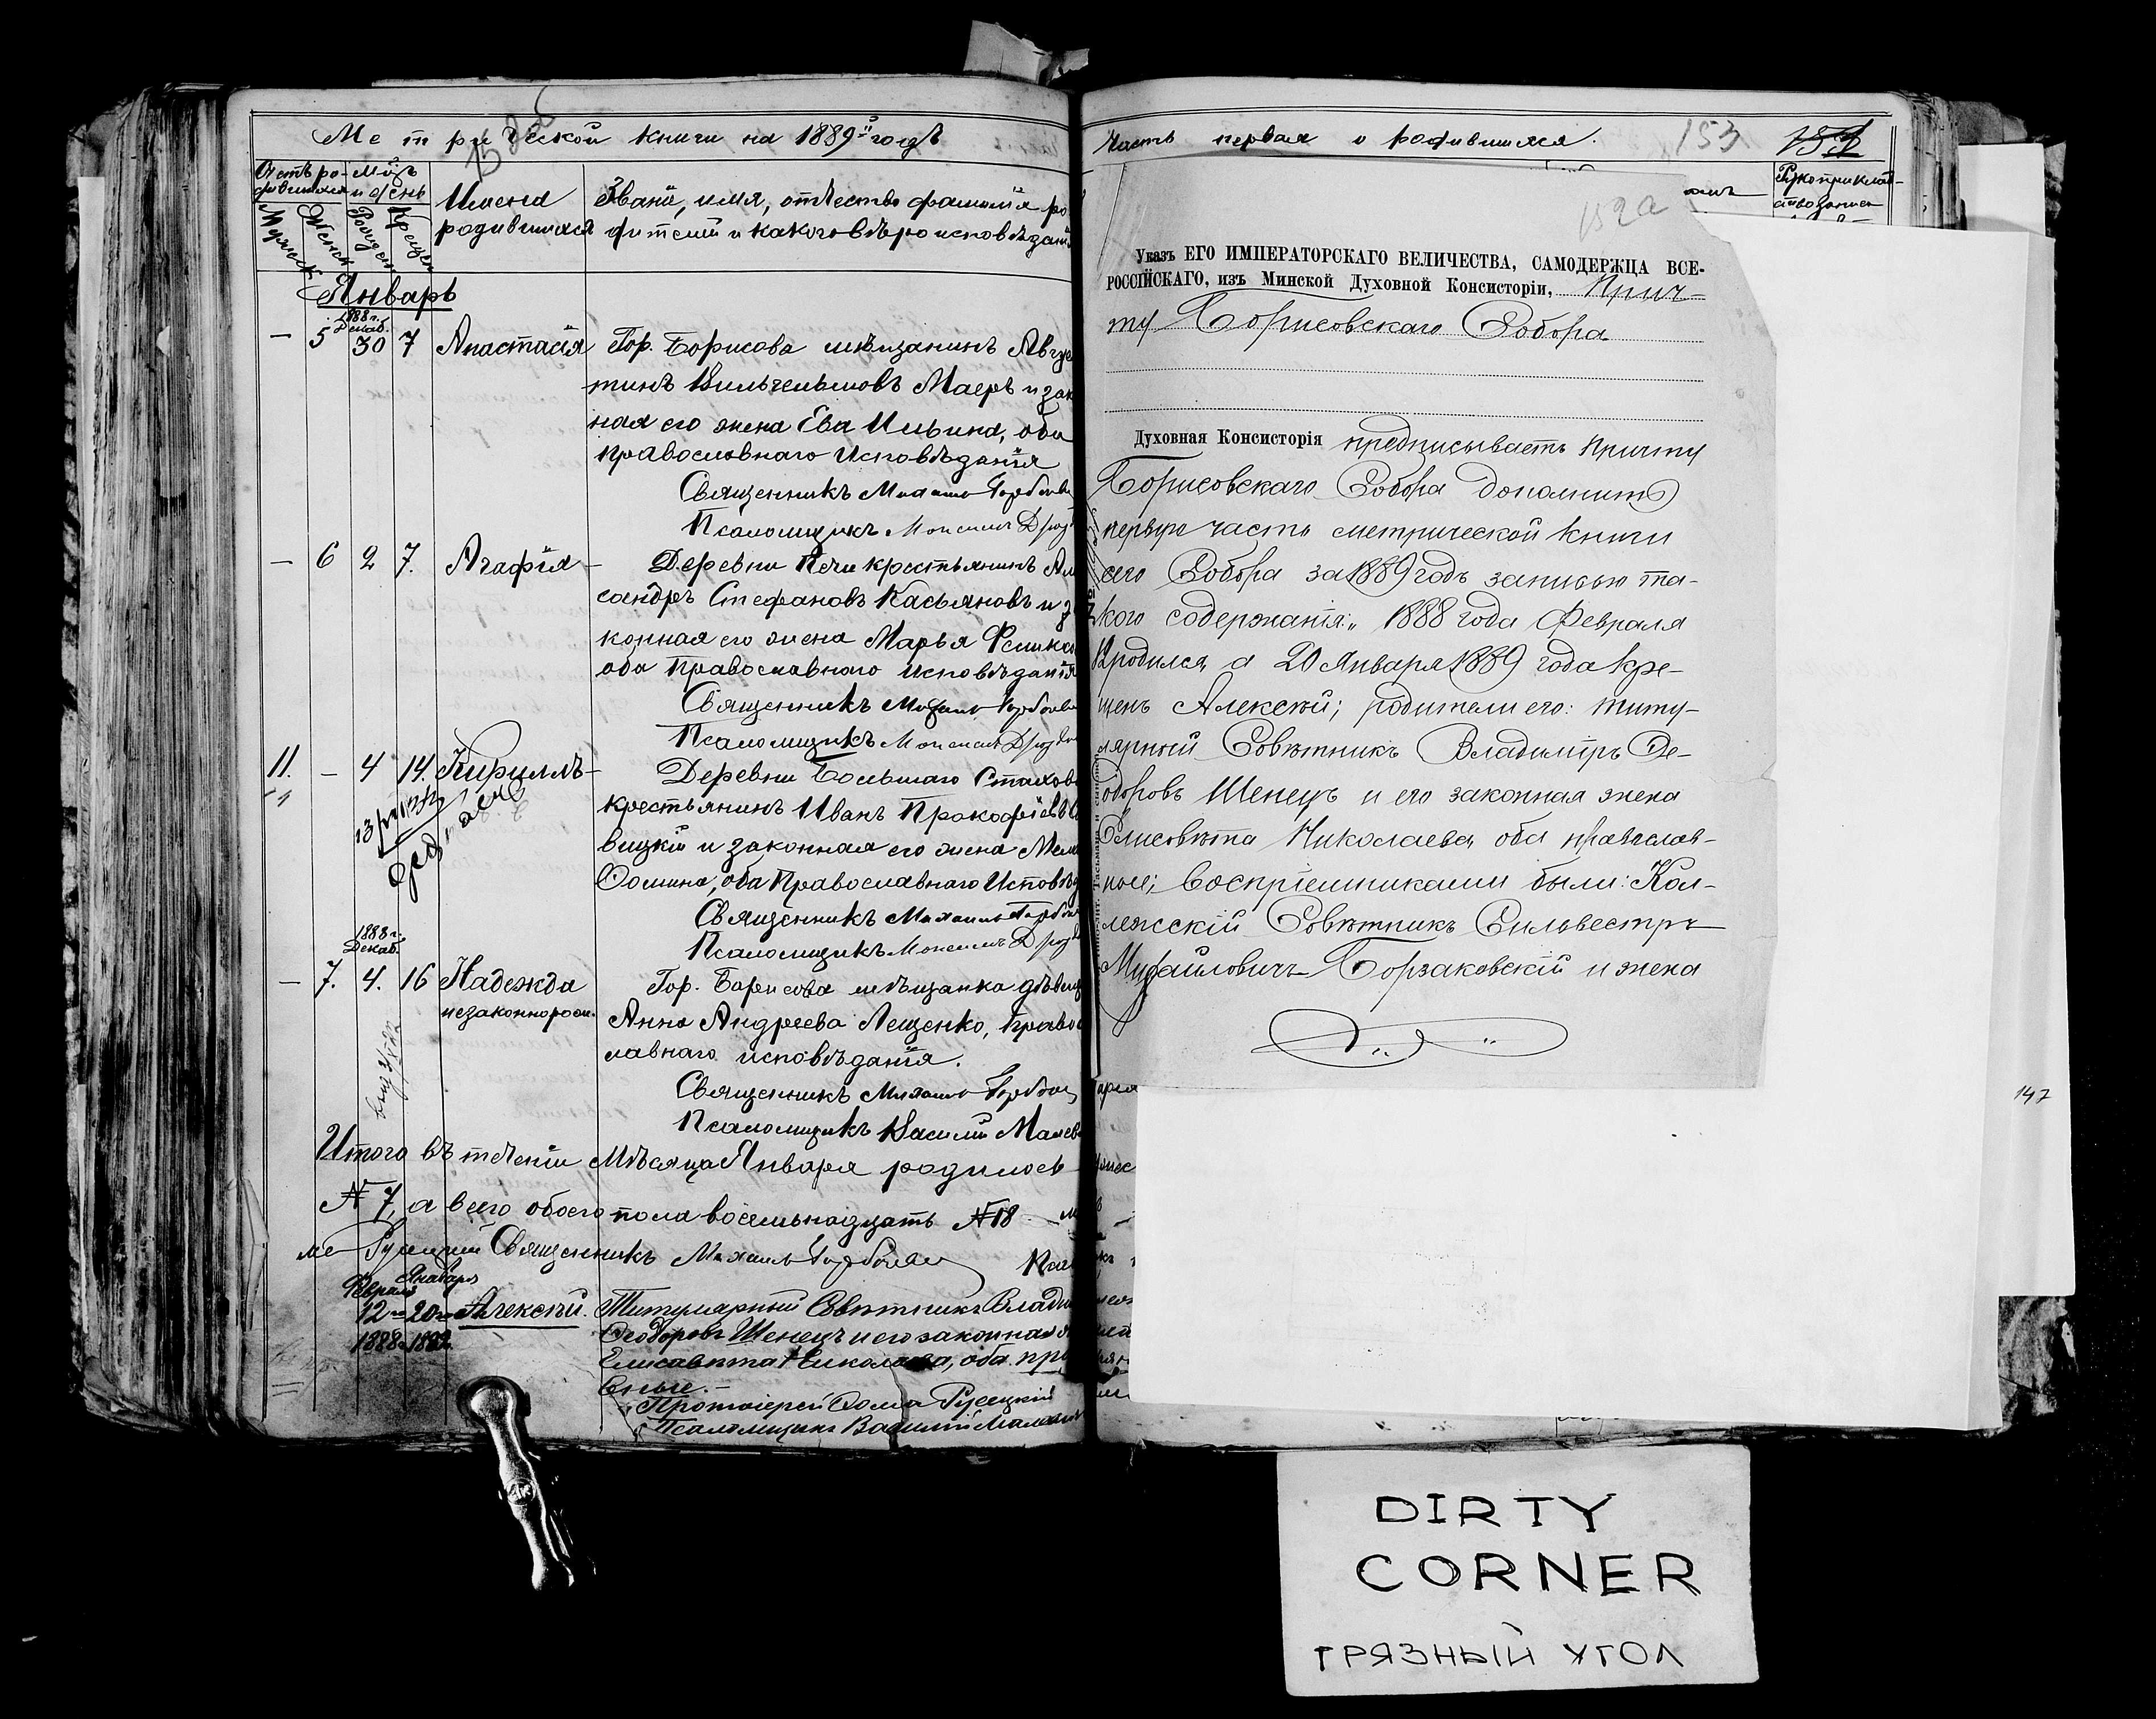 Метрической книги на 1889й годъ
Счетъ ро-
дившихся
Мѣсяцъ
и день
Имена
родившихся
Званіе, имя, отчество фамилія ро
дителей и какого вѣроисповѣданія
Мужеск
Женск
Рожден
Крещен
Январь
1888 г.
Декаб.
— 5 30 7 Анастасія Гор. Борисова мѣщанинъ Авгус
тинъ Вильгельмовъ Маеръ и зак
ная его жена Ева Ильина, оба
православнаго исповѣданія
Священникъ Михаилъ
Псаломщикъ
— 6 2 7. Агафія — Деревни Печи крестьянинъ Але
сандръ Стефановъ Касьяновъ и за
конная его жена Марья Феликсо
оба православнаго исповѣданія
Священникъ Михаилъ
Псаломщикъ
11. — 4 14. Кириллъ — Деревни Большаго Стахов
крестьянинъ Иванъ Прокофіевъ
вицкій и законная его жена
Фомина, оба Православнаго Исповѣд
Священникъ Михаилъ
Псаломщикъ
1888 г.
Декаб.
— 7. 4. 16 Надежда Гор. Борисова мѣщанка дѣвица
незаконнорож. Анна Андреева Лещенко, Право
славнаго исповѣданія.
Священникъ Михаилъ
Псаломщикъ Василій
Итого въ теченіи Мѣсяца Января родилось
№ 7, а всего обоего пола восемьнадцать №18
Священникъ Михаилъ
Февраля Января
12 — 20 — Алексѣй. Титулярный Совѣтникъ Влади
1888 1889 Ѳеодоровъ Шенецъ и его законная
Елисавета Николаева, оба пра
вные.
Протоіерей Ѳома Русецкій
Псаломщикъ Василій
Часть первая о родившихся.
153
Рукоприклад-
152а
Указъ ЕГО ИМПЕРАТОРСКАГО ВЕЛИЧЕСТВА, САМОДЕРЖЦА ВСЕ-
РОССІЙСКАГО, изъ Минской Духовной Консисторіи, Прич-
ту Борисовскаго Собора
Духовная Консисторія предписываетъ Причту
Борисовскаго Собора дополнить
первую часть метрической книги
сего Собора за 1889 годъ записью та-
кого содержанія: „1888 года Февраля
12 родился, а 20 Января 1889 года кре-
щенъ Алексѣй; родители его: титу-
лярный Совѣтникъ Владиміръ Ѳе-
одоровъ Шенецъ и его законная жена
Елисавета Николаева, оба православ-
ные; воспріемниками были: Кол-
лежскій Совѣтникъ Сильвестръ
Михайловичъ Борзаковскій и жена
147
DIRTY
CORNER
ГРЯЗНЫЙ УГОЛ